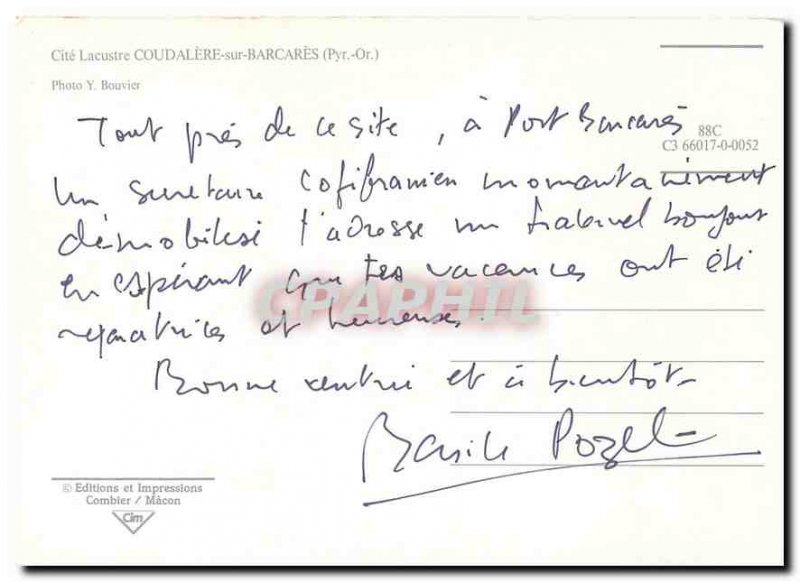 Cité Lacustre COUDALÈRE-sur-BARCARÈS (Pyr.-Or.)
Photo Y. Bouvier
88C
C3 66017-0-0052
Tout près de ce site, à Port Barcarès
un secrétaire momentanément
démobilisé t'adresse un bonjour
en espérant que tes vacances ont été
réparatrices et heureuses.
Bonne rentrée et à bientôt
Basile
CPAPHIL
© Editions et Impressions
Combier / Mâcon
Cim